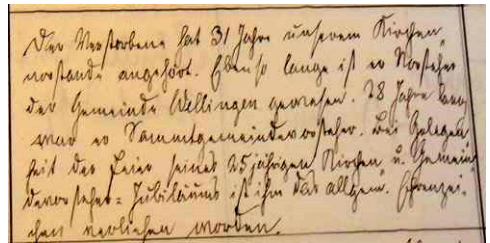 Der Verstorbene hat 31 Jahre unserem Kirchen
vorstande angehört. Ebenso lange ist er Vorsteher
der Gemeinde Wellingen gewesen. 28 Jahre lang
war er Sammtgemeindevorsteher. Bei Gelegen
heit der Feier seines 25jährigen Kirchen u. Gemein
devorsteher-Jubiläums ist ihm das allgem. Ehrenzei-
chen verliehen worden.